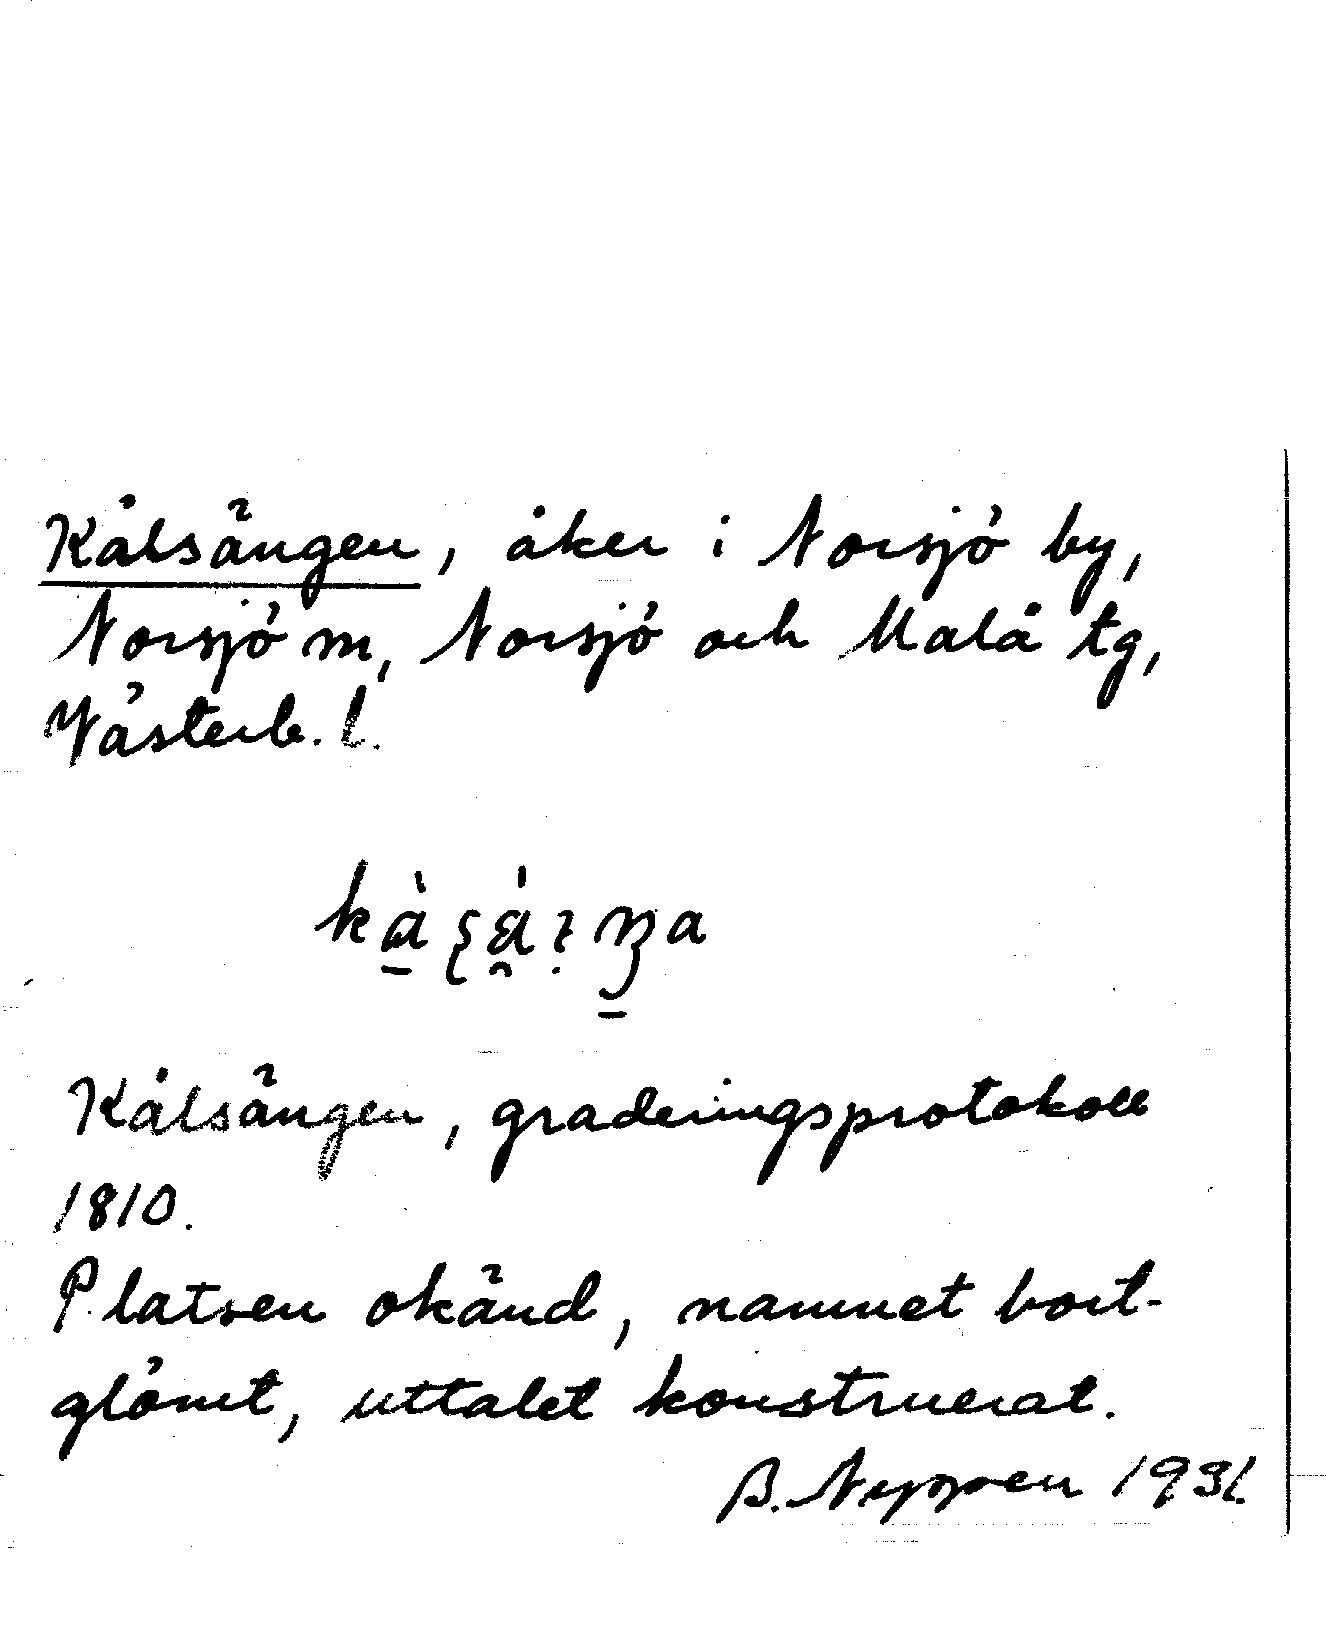 Kålsängen, åker i Norsjö by,
Norsjö m, Norsjö och Malå tg,
Västerb. l.
Kålsängen, graderingsprotokoll
1810.
Platsen okänd, namnet bort-
glömt, uttalet konstruerat.
B. 1931.